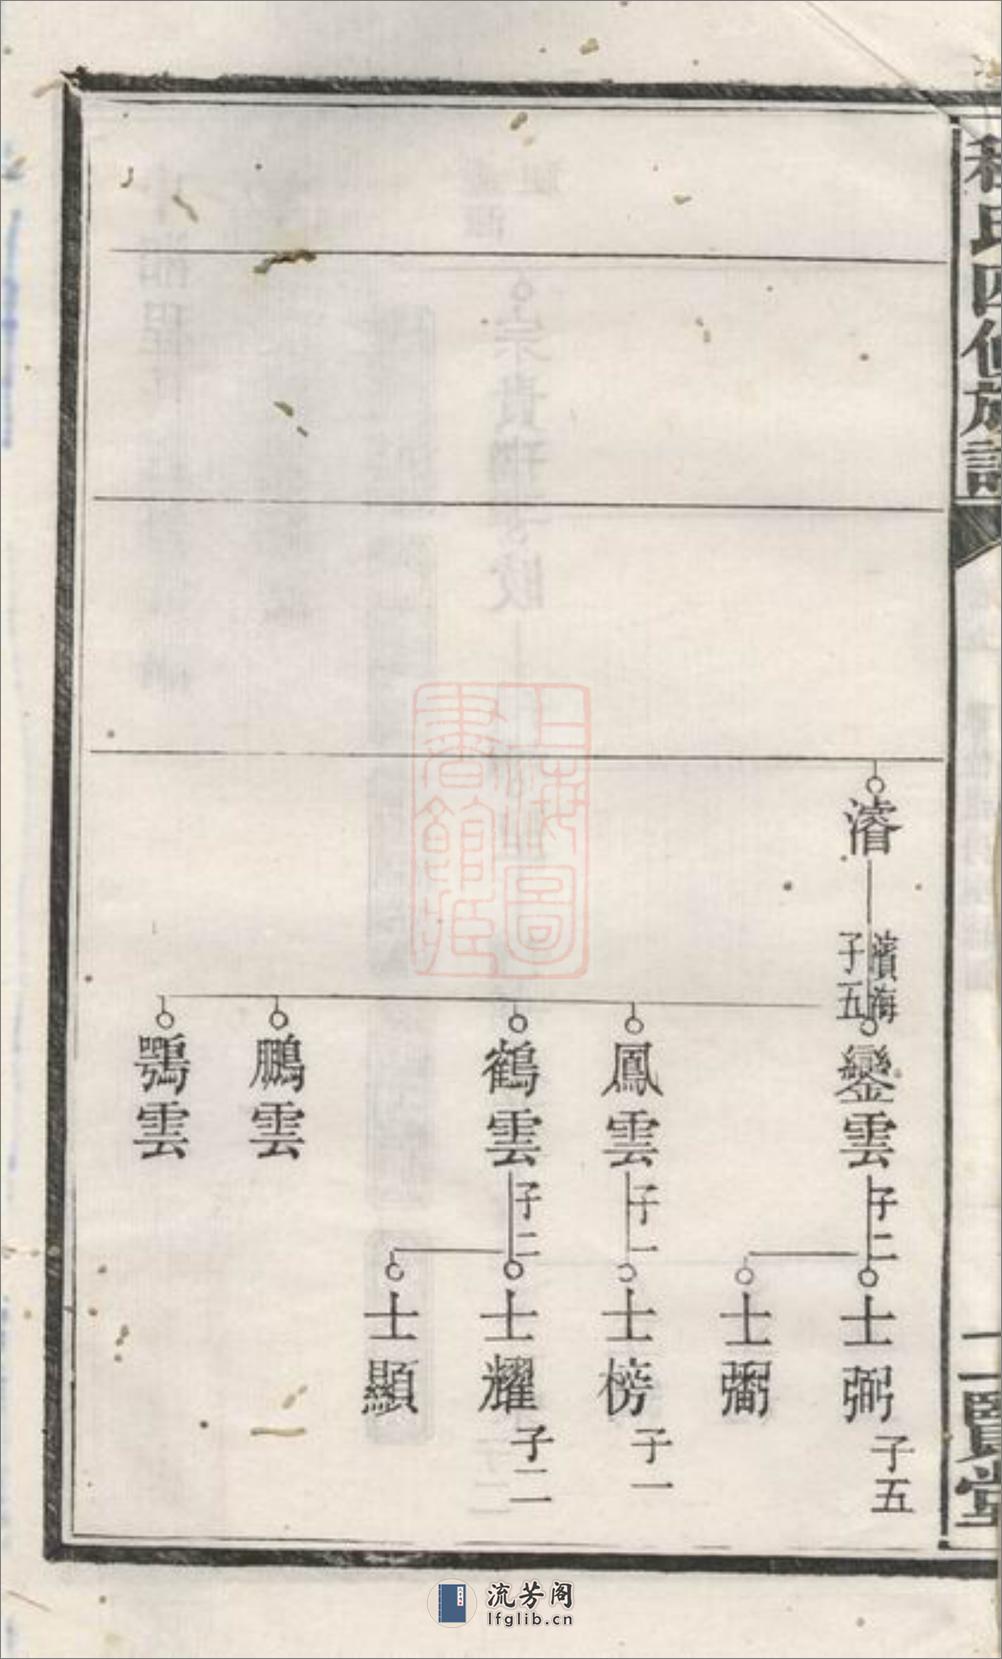 程氏四修族譜
二賢堂
濬
濱海
子五
鑾雲
子二
士弼
子五
士
鳳雲
子一
士榜
子一
鶴雲
子二
士耀
子二
士顯
鵬雲
鶚雲
上海圖
書館藏
流芳阁
lfglib.cn